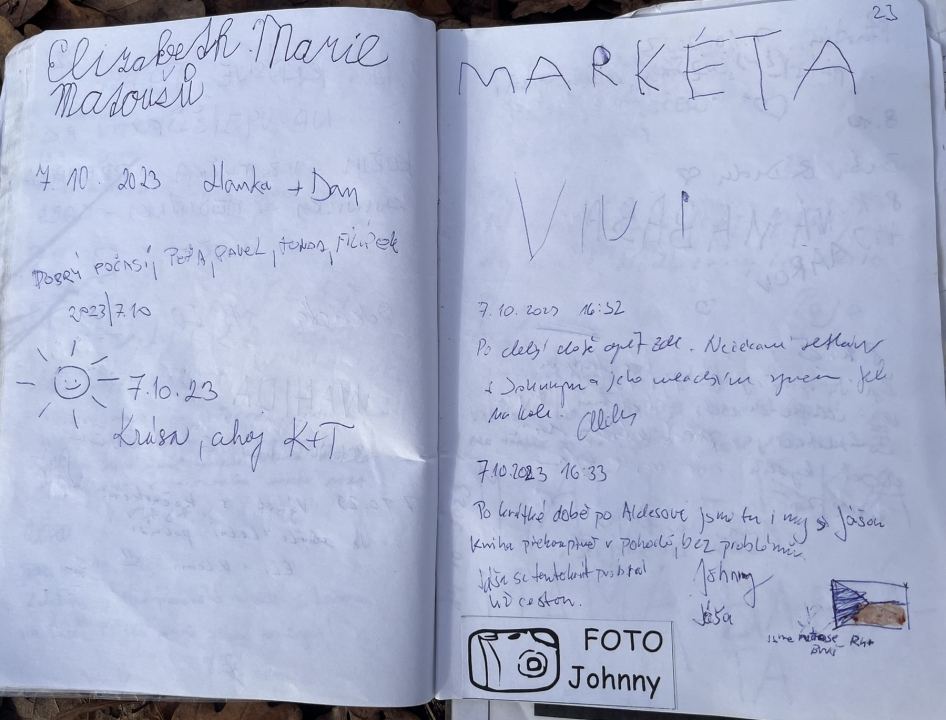 Elizabeth Marie
Matoušů
7. 10. 2023 Hanka + Dan
DOBRÝ POČASÍ, PEŤA, PAVEL, TONDA, FILÍPEK
2023/7.10
7.10.23
Krása, ahoj K+T
23
MARKÉTA
VIVI
7.10.2023 16:32
Po delší době opět zde. Nečekaní setkání
s Johnnym a jeho mladším synem. Jel
na kole.
7.10.2023 16:33
Po krátké době po Aldesovi jsme tu i my s Jášou
Kniha překvapivě v pohodě, bez problémů.
Jáša se tentokrát probral
už cestou.
Johnny
Jáša
FOTO
Johnny